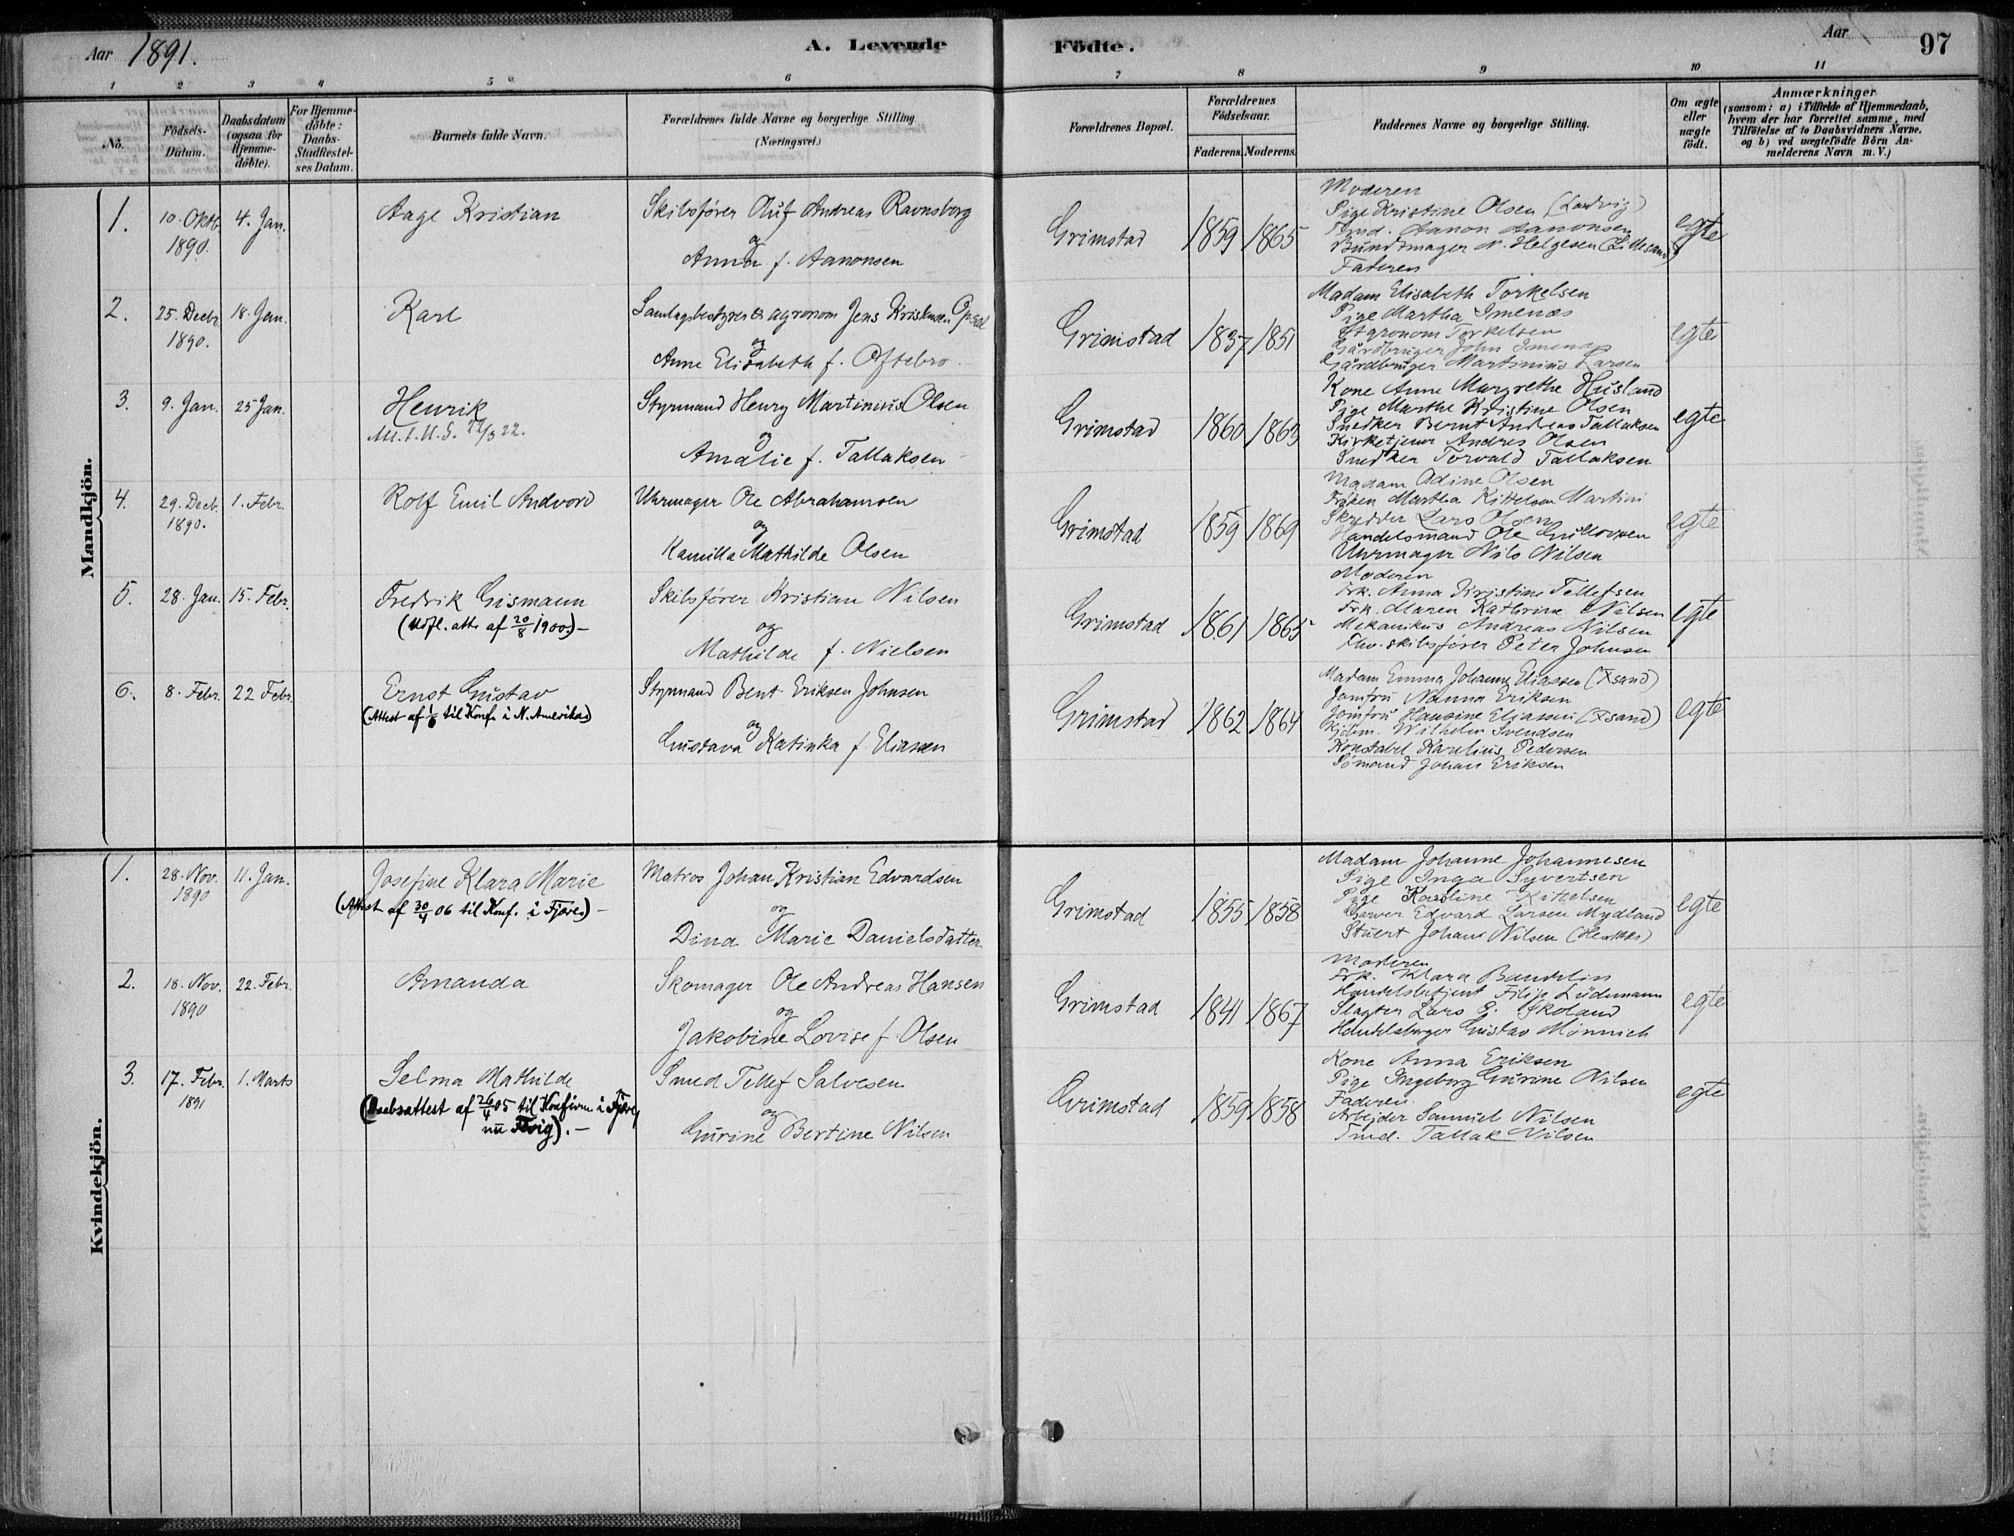 Aar 1891. A. Levende Födte. Aar 97
1 2 3 4 5 6 7 8 9 10 11
No. Födsels-Datum. Daabsdatum (ogsaa for Hjemme-döbte). For Hjemme-döbte: Daabs-Stadfæstel-ses Datum. Barnets fulde Navn. Forældrenes fulde Navne og borgerlige Stilling (Næringsvei.) Forældrenes Bopæl. Forældrenes Födselsaar. Faderens. Moderens. Faddernes Navne og borgerlige Stilling. Om ægte eller uægte födt. Anmærkninger (saasom: a) i Tilfælde af Hjemmedaab, hvem der har forrettet samme, med Tilföielse af to Daabsvidners Navne. og b) ved uægtefödte Börn An-melderens Navn m. V.)
Mandkjön.
1. 10. Oktb. 1890. 4. Jan. Aage Kristian
Skibsfører Oluf Andreas Ravnsborg
og
Anna f. Aanonsen
Grimstad 1859 1865
Moderen
Pige Kristine Olsen (Ludvig)
Tmd. Aanon Aanonsen
Bundtmager N. Helgesen (Lillesand)
Faderen
egte
2. 25. Decbr. 1890. 18. Jan. Karl
Samlagsbestyrer & agronom Jens Kristensen Opsal
og
Anne Elisabeth f. Oftebro
Grimstad 1837 1851
Madam Elisabeth Torkelsen
Pige Martha Imenæs
Agronom Torkelsen
Gårdbruger John Imenæs
Gårdbruger Martinius Larsen
egte
3. 9. Jan. 25 Jan. Henrik
22.
Styrmand Henry Martinius Olsen
og
Amalie f. Tallaksen
Grimstad 1860 1863
Kone Anne Margrethe Husland
Pige Marthe Kristine Olsen
Snedker Bernt Andreas Tallaksen
Kirketjener Andres Olsen
Snedker Torvald Tallaksen
egte
4. 29. Decb. 1890. 1. Febr. Rolf Emil Andvord
Uhrmager Ole Abrahamsen
og
Kamilla Mathilde Olsen
Grimstad 1859 1869
Madam Adine Olsen
Frøken Martha Kittelsen Martini
Skredder Lars Olsen
Handelsmand Ole Gullovsen
Uhrmager Nils Nilsen
egte
5. 28. Jan. 15. Febr. Fredrik Gismann
(Udfl. att. af 20/8 1900.) –
Skibsfører Kristian Nilsen
og
Mathilde f. Nielsen
Grimstad 1861 1865
Moderen
Frk. Anna Kristine Tellefsen
Frk. Maren Kathrine Nilsen
Mekanikus Andreas Nilsen
skibsfører Peter Johnsen
egte
6. 8. Febr. 22 Febr. Ernst Gustav
(Attest af til Konf. i N. Amerika)
Styrmand Bent Eriksen Johnsen
og
Gustava Katinka f. Eliassen
Grimstad 1862 1864
Madam Emma Johanne Eliassen (Xsand)
Jomfru Nanna Eriksen
Jomfru Hansine Eliassen (Xsand)
Wilhelm Svendsen
Konstabel Karelius Pedersen
Sømand Johan Eriksen
egte
Kvindekjön.
1. 28. Nov. 1890 11. Jan. Josefine Klara Marie
(Attest af 30/4 06 til Konf. i Fjære) –
Matros Johan Kristian Edvardsen
og
Dina Marie Danielsdatter
Grimstad 1855 1858
Madam Johanne Johannesen
Pige Inga Syvertsen
Pige Karoline Kittelsen
Garver Edvard Larsen Mydland
Stuert Johans Nilsen (Hesnes)
egte
2. 18. Nov. 1890 22. Febr. Amanda
Skomager Ole Andreas Hansen
og
Jakobine Lovise f. Olsen
Grimstad 1841 1867
Moderen
Frk. Klara Bandelin
Handelsbetjent Filip Lüdemann
Slagter Lars E. Skoland
Handelsborger Gustav Mönnich
egte
3. 17. Febr. 1891 1. Marts Selma Mathilde
(Daabsattest af 26/4 05 til Konfirm. i Fjære,
nu Fevig). –
Smed Tellef Salvesen
og
Gurine Bertine Nilsen
Grimstad 1859 1858
Kone Anna Eriksen
Pige Ingeborg Gurine Nilsen
Faderen
Arbejder Samuel Nilsen
Tmd. Tallak Nilsen
egte